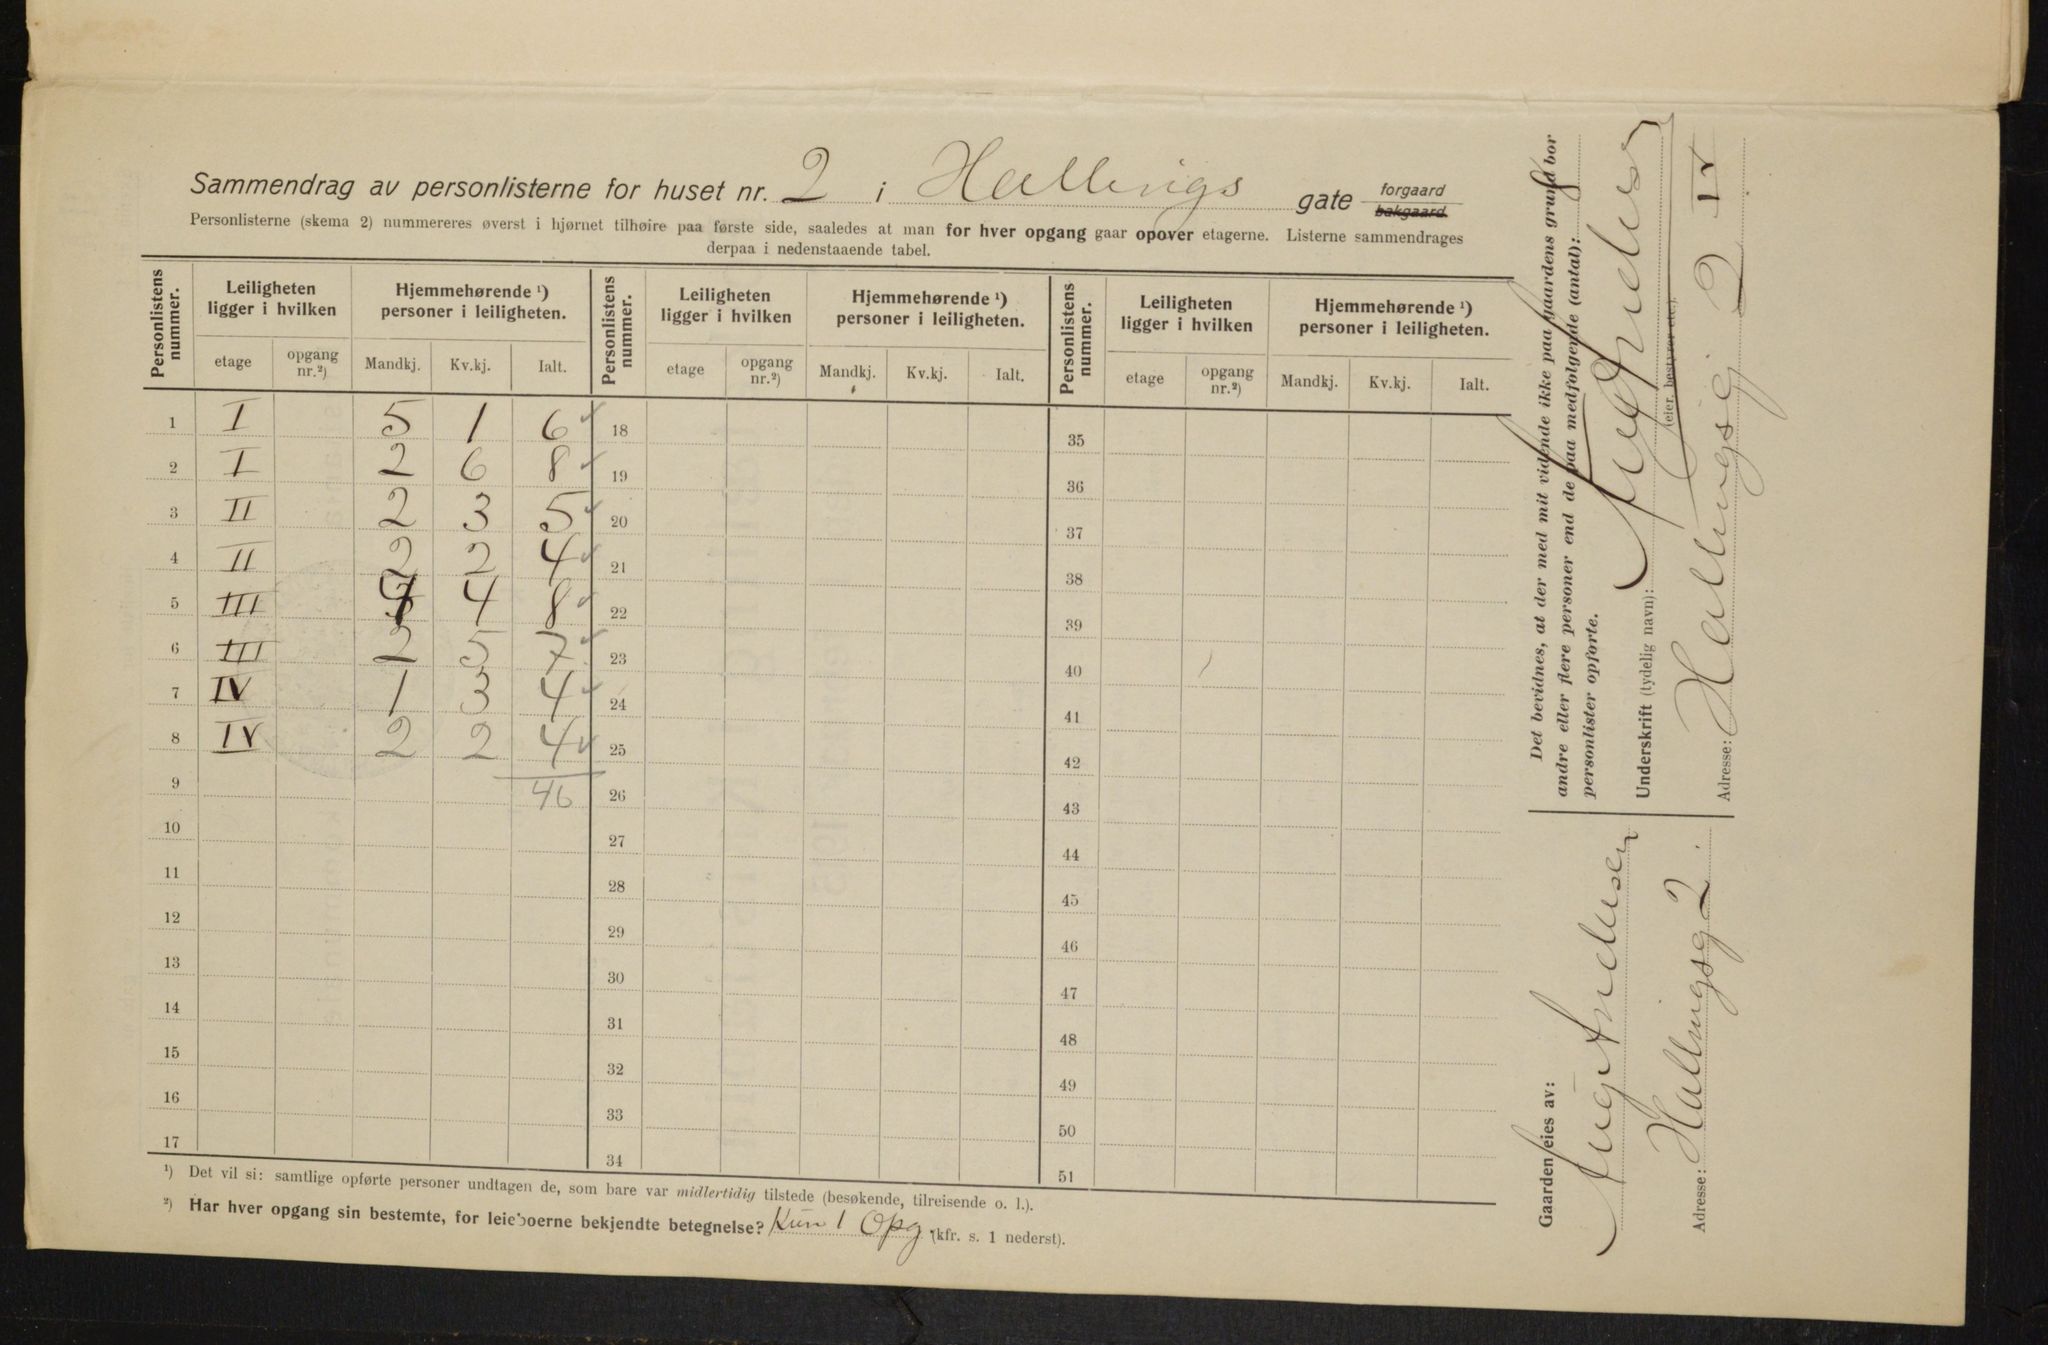 Sammendrag av personlisterne for huset nr. 2 i Hallings gate forgaard bakgaard
Personlisterne (skema 2) nummereres øverst i hjørnet tilhøire paa første side, saaledes at man for hver opgang gaar opover etagerne. Listerne sammendrages
derpaa i nedenstaaende tabel.
Personlistens nummer. Leiligheten ligger i hvilken Hjemmehørende ¹) personer i leiligheten. Personlistens nummer. Leiligheten ligger i hvilken Hjemmehørende ¹) personer i leiligheten. Personlistens nummer. Leiligheten ligger i hvilken Hjemmehørende ¹) personer i leiligheten.
etage opgang nr.²) Mandkj. Kv.kj. Ialt. etage opgang nr.²) Mandkj. Kv.kj. Ialt. etage opgang nr.²) Mandkj. Kv.kj. Ialt.
1 I 5 1 6 18 35
2 I 2 6 8 19 36
3 II 2 3 5 20 37
4 II 2 2 4 21 38
5 III 4 4 8 22 39
6 III 2 5 7 23 40
7 IV 1 3 4 24 41
8 IV 2 2 4 25 42
9 46 26 43
10 27 44
11 28 45
12 29 46
13 30 47
14 31 48
15 32 49
16 33 50
17 34 51
¹) Det vil si: samtlige opførte personer undtagen de, som bare var midlertidig tilstede (besøkende, tilreisende o. l.).
²) Har hver opgang sin bestemte, for leieboerne bekjendte betegnelse? Kun 1 Opg. (kfr. s. 1 nederst).
Det bevidnes, at der med mit vidende ikke paa gaardens grund bor
andre eller flere personer end de paa medfølgende (antal): 8
personlister opførte.
Underskrift (tydelig navn): Aug Andersen
(eier, bestyrer etc.).
Adresse: Hallingsg 2 IV
Gaarden eies av:
Aug Andersen
Adresse: Hallingsg 2.